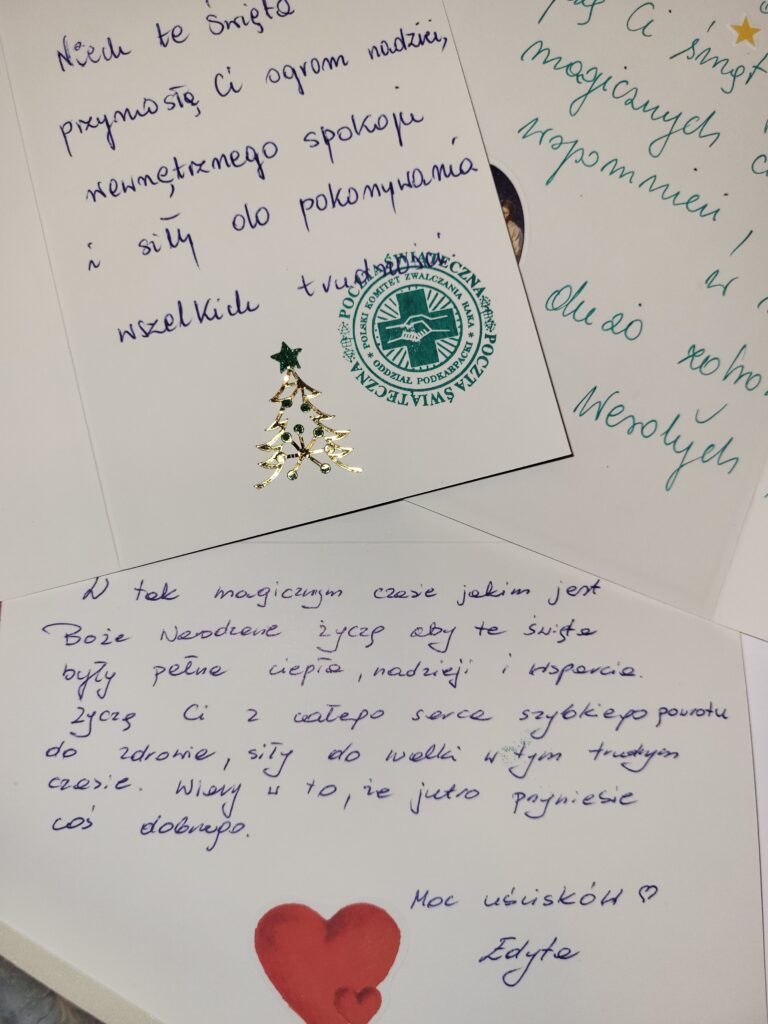 Niech te Święta
przyniosłą Ci ogrom nadziei,
wewnętrznego spokoju
i siły do pokonywania
wszelkich trudności.
POCZTA ŚWIĄTECZNA * POCZTA ŚWIĄTECZNA
POLSKI KOMITET ZWALCZANIA RAKA * ODDZIAŁ PODKARPACKI *
Ci świąt
magicznych
wspomnień,
w
dużo
Wesołych
W tak magicznym czasie jakim jest
Boże Narodzene życzę aby te święta
były pełne ciepła, nadzieji i wsparcia.
Życzę Ci z całego serca szybkiego powrotu
do zdrowie, siły do walki w tym trudnym
czasie. Wierzę w to, że jutro przyniesie
coś dobrego.
Moc uścisków ♡
Edyta